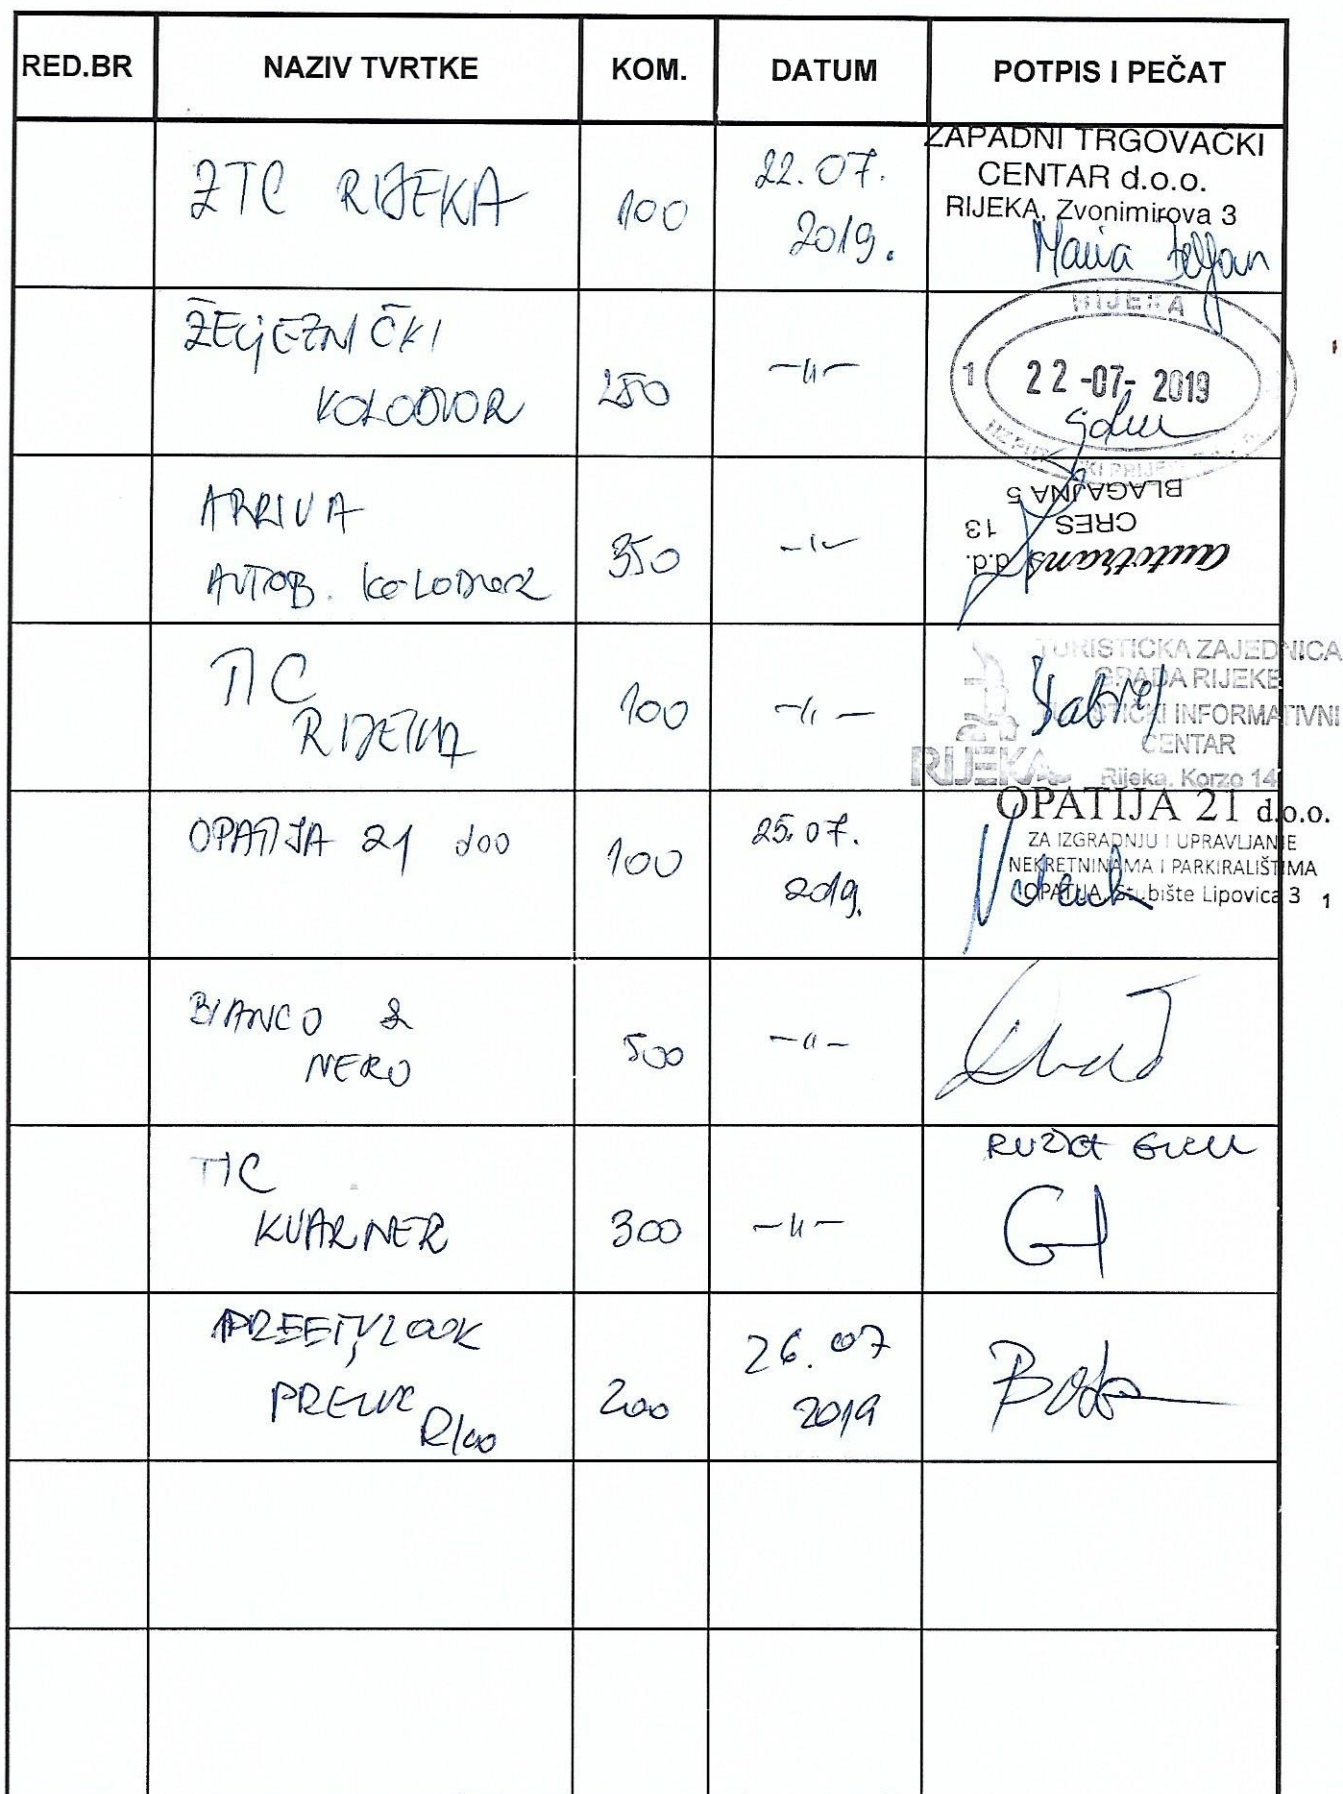 RED.BR NAZIV TVRTKE KOM. DATUM POTPIS I PEČAT
ZTC RIJEKA 100 22.07.
2019.
ZAPADNI TRGOVAČKI
CENTAR d.o.o.
RIJEKA, Zvonimirova 3
ŽELJEZNIČKI
KOLODVOR 250 -〃-
RIJEKA
1 22-07-2019
ARRIVA
AUTOB. KOLODVOR 350 -〃-
autotrans d.d.
CRES 13
BLAGAJNA 5
TIC
RIJEKA 100 -〃-
TURISTIČKA ZAJEDNICA
GRADA RIJEKE
INFORMATIVNI
CENTAR
RIJEKA Rijeka, Korzo 14
OPATIJA 21 doo 100 25.07.
2019.
OPATIJA 21 d.o.o.
ZA IZGRADNJU I UPRAVLJANJE
NEKRETNINAMA I PARKIRALIŠTIMA
OPATIJA, Stubište Lipovica 3 1
BIANCO &
NERO 500 -〃-
TIC
KVARNER 300 -〃-
200 26.07
2019